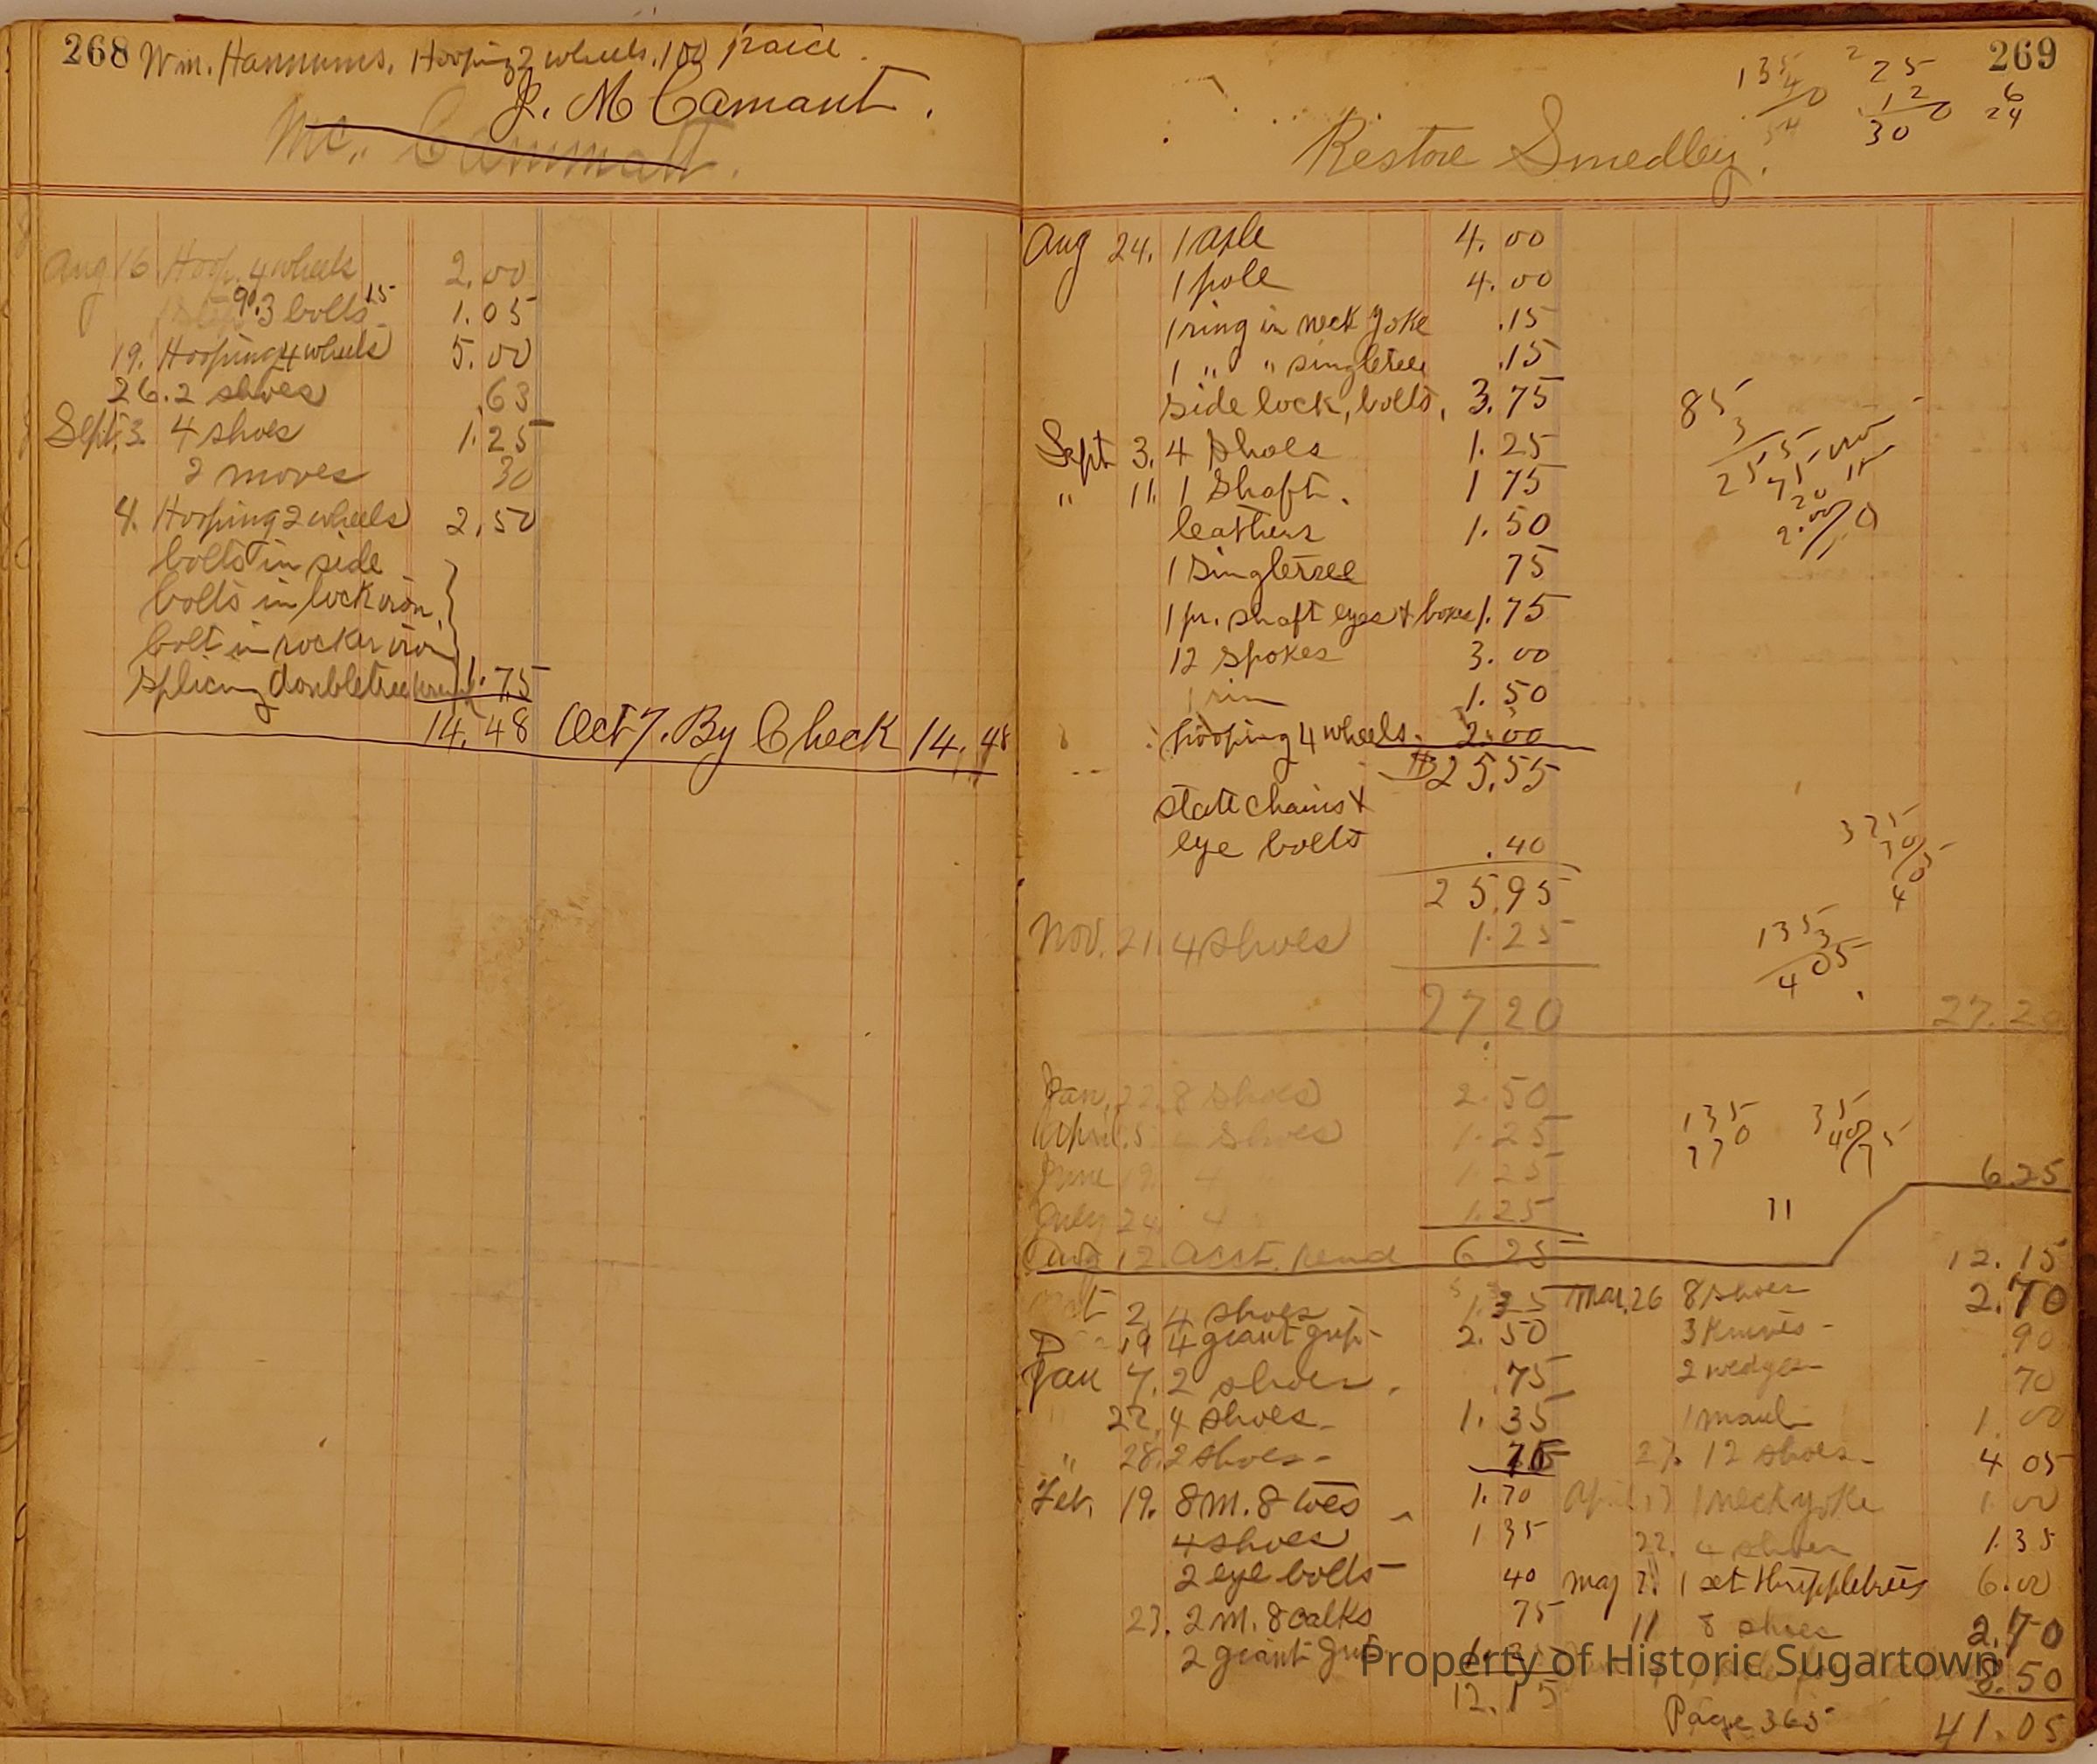 268 Wm. Hannums. Hooping 2 wheels. 1.00 paid.
J. M Camant.
Mc. Cammatt.
Aug 16 Hoop. 4 wheels 2.00
90. 3 bolts 15 1.05
19. Hooping 4 wheels 5.00
26. 2 shoes .63
Sept. 3. 4 shoes 1.25
2 moves 30
4. Hooping 2 wheels 2.50
bolts in side
bolts in lock iron,
bolt in rocker iron
splicing doubletree 1.75
14.48 Oct 7. By Check 14.48
269
135
4
54 0
2 25
12
30 0
6
24
Restore Smedley.
Aug 24. 1 axle 4.00
1 pole 4.00
1 ring in neck yoke .15
1 " " singletree .15
side lock, bolts, 3.75
Sept 3. 4 shoes 1.25
" 11. 1 shaft. 1 75
leathers 1.50
1 singletree 75
1 pr. shaft eyes & boxes 1.75
12 spokes 3.00
1 rim 1.50
hooping 4 wheels. 2.00
$25.55
state chains &
eye bolts .40
25.95
Nov. 21. 4 shoes 1.25
27 20 27.20
85
3
255
75
20
2.00
325
405
135
3
405
Jan. 22. 8 shoes 2.50
April. 5 shoes 1.25
June 19. 4 " 1.25
July 24 4 1.25
Aug 12 acct. 6 25
135
270
35
40
75
11
6.25
12.15
2, 4 shoes 1.35
19 4 giant grip 2.50
Jan 7. 2 shoes. .75
22. 4 shoes 1.35
" 28. 2 shoes
Feb. 19. 8 m. 8 toes 1.70
4 shoes 1 35
2 eye bolts 40
23. 2 m. 8 calks 75
2 giant
12.15
Mar. 26 8 shoes 2.70
3 knives 90
2 wedges 70
1 maul 1.00
27. 12 shoes 4 05
April 17 1 neck yoke 1 00
22. 4 shoes 1.35
May 2. 1 set thrippletrees 6.00
11 8 shoes 2.70
8.50
Page 365 41.05
Property of Historic Sugartown